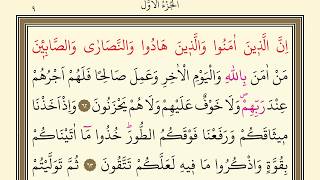 ٩ اَلْجُزْءُ الْاَوَّلُ
اِنَّ الَّذ۪ينَ اٰمَنُوا وَالَّذ۪ينَ هَادُوا وَالنَّصَارٰى وَالصَّابِـ۪ٔينَ
مَنْ اٰمَنَ بِاللّٰهِ وَالْيَوْمِ الْاٰخِرِ وَعَمِلَ صَالِحًا فَلَهُمْ اَجْرُهُمْ
عِنْدَ رَبِّهِمْۖ وَلَا خَوْفٌ عَلَيْهِمْ وَلَا هُمْ يَحْزَنُونَ ﴿٦٢﴾ وَاِذْ اَخَذْنَا
م۪يثَاقَكُمْ وَرَفَعْنَا فَوْقَكُمُ الطُّورَۜ خُذُوا مَٓا اٰتَيْنَاكُمْ
بِقُوَّةٍ وَاذْكُرُوا مَا ف۪يهِ لَعَلَّكُمْ تَتَّقُونَ ﴿٦٣﴾ ثُمَّ تَوَلَّيْتُمْ